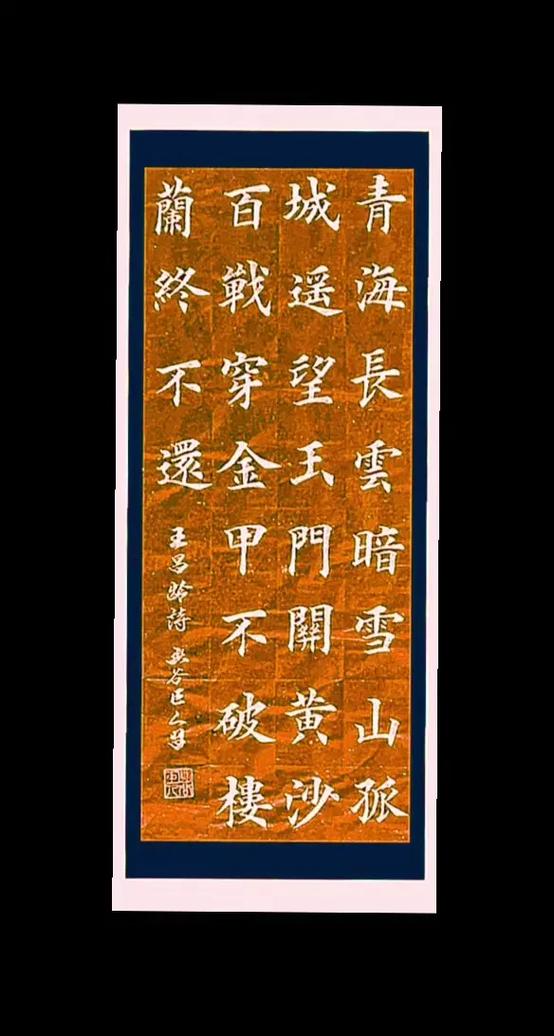 青海長雲暗雪山孤
城遥望玉門關黄沙
百戰穿金甲不破樓
蘭終不還
王昌齡詩